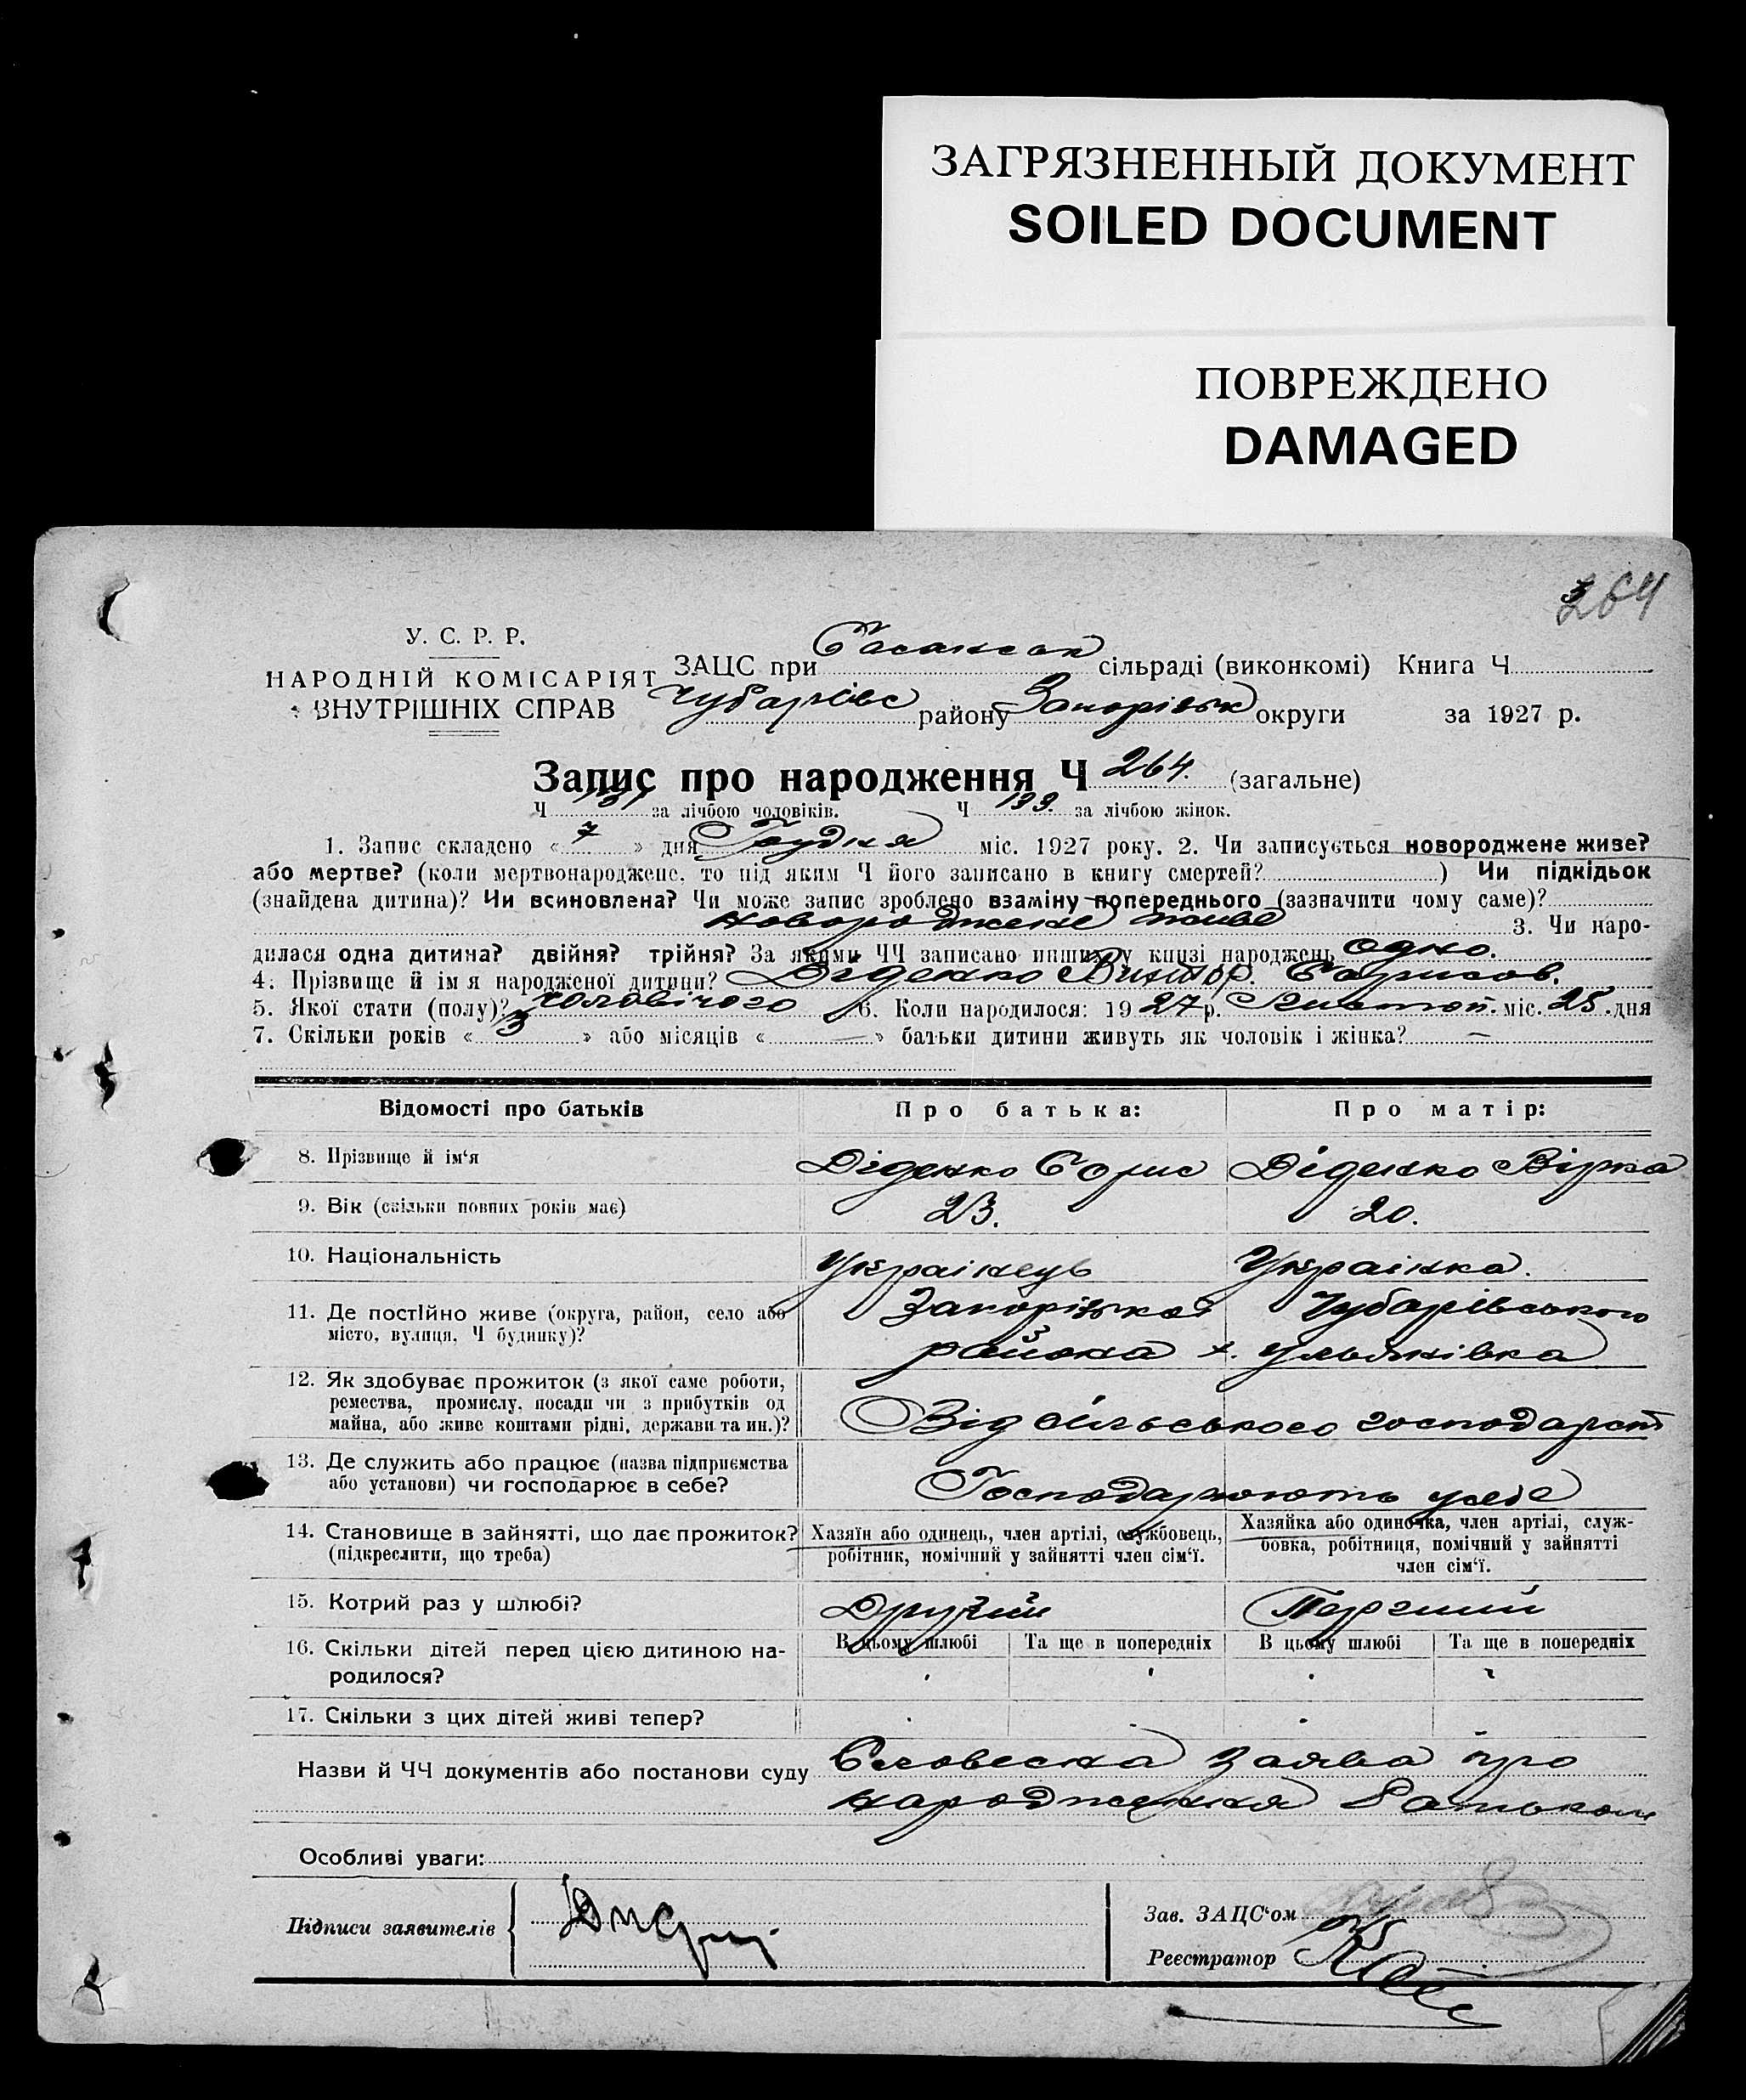 ЗАГРЯЗНЕННЫЙ ДОКУМЕНТ
SOILED DOCUMENT
ПОВРЕЖДЕНО
DAMAGED
264
У. С. Р. Р.
НАРОДНІЙ КОМІСАРІЯТ
ВНУТРІШНІХ СПРАВ
ЗАЦС при Басанськ сільраді (виконкомі) Книга Ч
Чубарівс району Запорізьк округи за 1927 р.
Запис про народження Ч 264. (загальне)
Ч 131 за лічбою чоловіків. Ч 133. за лічбою жінок.
1. Запис складено « 7 » дня Грудня міс. 1927 року. 2. Чи записується новороджене живе?
або мертве? (коли мертвонароджене, то під яким Ч його записано в книгу смертей? ) Чи підкідьок
(знайдена дитина)? Чи всиновлена? Чи може запис зроблено взаміну попереднього (зазначити чому саме)?
новороджене живе 3. Чи наро-
дилася одна дитина? двійня? трійня? За якими ЧЧ записано инших у книзі народжень одно.
4. Прізвище й імя народженої дитини? Діденко Виктор. Борисов.
5. Якої стати (полу)? чоловічого 6. Коли народилося: 1927 р. Листоп. міс. 25. дня
7. Скільки років « 3 » або місяців « — » батьки дитини живуть як чоловік і жінка? —
Відомості про батьків Про батька: Про матір:
8. Прізвище й ім'я Діденко Борис Діденко Вірка
9. Вік (скільки повних років має) 23. 20.
10. Національність Українець Українка.
11. Де постійно живе (округа, район, село або Запорізька Чубарівського
місто, вулиця, Ч будинку)? района х. Ульянівка
12. Як здобуває прожиток (з якої саме роботи,
ремества, промислу, посади чи з прибутків од
майна, або живе коштами рідні, держави та ин.)? Від сільського господарст
13. Де служить або працює (назва підприємства
або установи) чи господарює в себе? Господарюють у себе
14. Становище в зайнятті, що дає прожиток?
(підкреслити, що треба)
Хазяїн або одинець, член артілі, службовець,
робітник, помічний у зайнятті член сім'ї.
Хазяйка або одиночка, член артілі, служ-
бовка, робітниця, помічний у зайнятті
член сім'ї.
15. Котрий раз у шлюбі? Другий Первий
16. Скільки дітей перед цією дитиною на-
родилося?
В цьому шлюбі Та ще в попередніх В цьому шлюбі Та ще в попередніх
17. Скільки з цих дітей живі тепер?
Назви й ЧЧ документів або постанови суду Словесна заява про
народження батьком
Особливі уваги:
Підписи заявителів
Зав. ЗАЦС'ом
Реєстратор